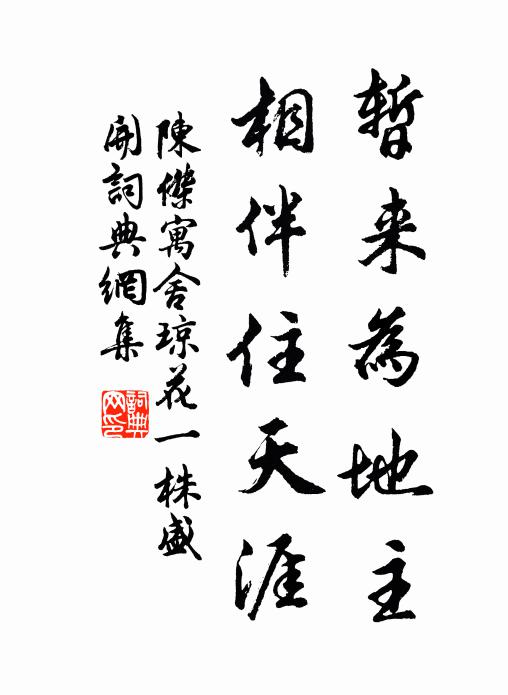 暫来為地主
相伴住天涯
陳傑寓舍瓊花一株盛
開詞典網集
詞典网印